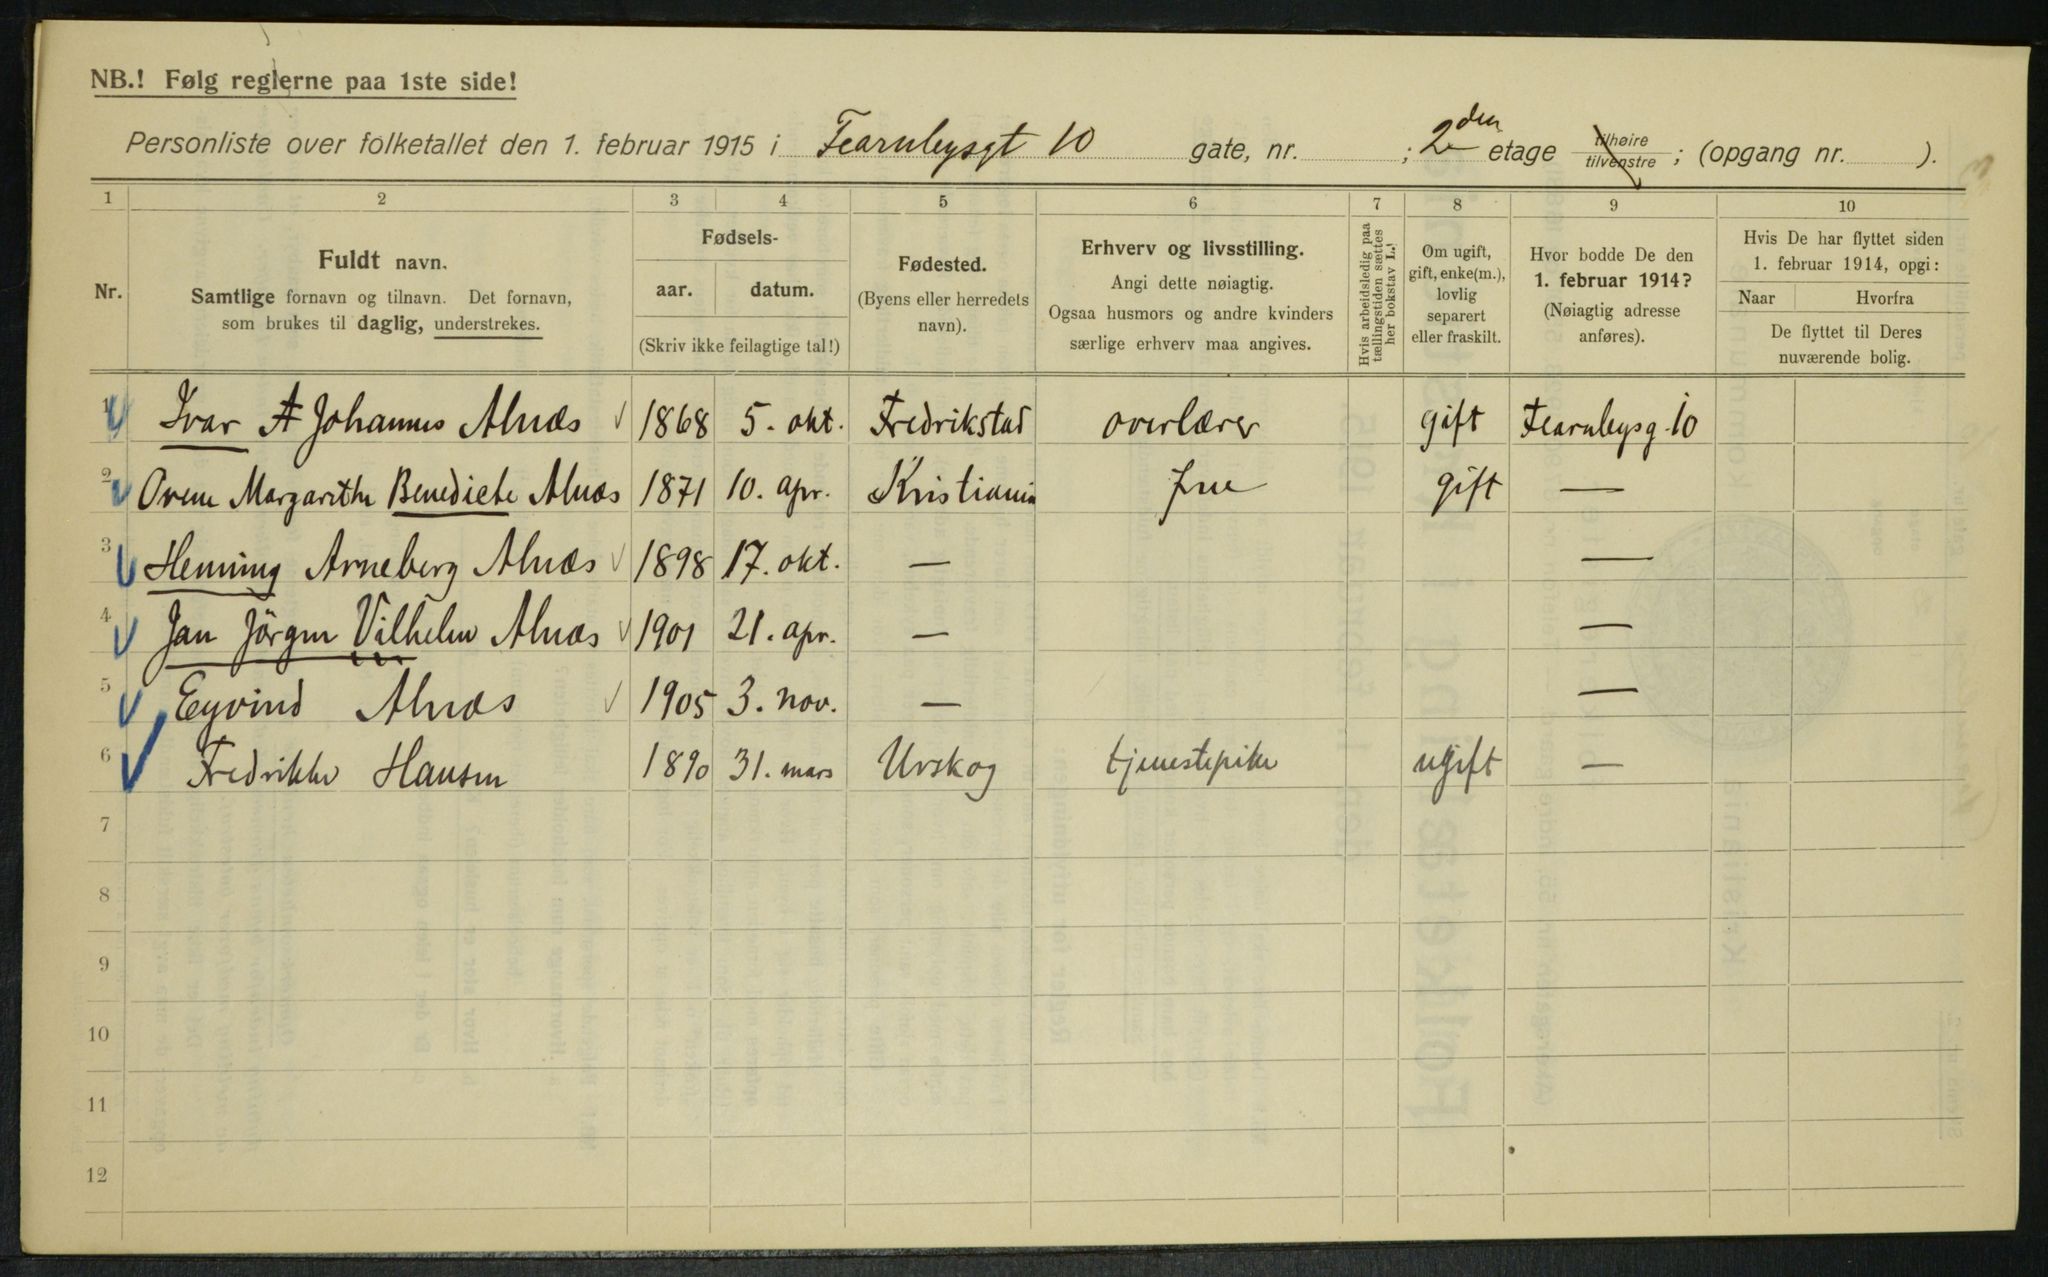 NB.! Følg reglerne paa 1ste side!
Personliste over folketallet den 1. februar 1915 i Fearnleysgt 10 gate, nr. ; 2den etage tilhøire tilvenstre ; (opgang nr. ).
1 2 3 4 5 6 7 8 9 10
Nr.
Fuldt navn.
Samtlige fornavn og tilnavn. Det fornavn,
som brukes til daglig, understrekes.
Fødsels-
aar. datum.
(Skriv ikke feilagtige tal!)
Fødested.
(Byens eller herredets
navn).
Erhverv og livsstilling.
Angi dette nøiagtig.
Ogsaa husmors og andre kvinders
særlige erhverv maa angives.
Hvis arbeidsledig paa
tællingstiden sættes
her bokstav L.!
Om ugift,
gift, enke(m.),
lovlig
separert
eller fraskilt.
Hvor bodde De den
1. februar 1914?
(Nøiagtig adresse
anføres).
Hvis De har flyttet siden
1. februar 1914, opgi:
Naar Hvorfra
De flyttet til Deres
nuværende bolig.
1 Ivar A Johannes Alnæs 1868 5. okt. Fredrikstad overlærer gift Fearnleysg. 10
2 Margarithe Benedicte Alnæs 1871 10. apr. Kristiania frue gift —
3 Henning Arneberg Alnæs 1898 17. okt. — —
4 Jan Jörgen Vilhelm Alnæs 1901 21. apr. — —
5 Eyvind Alnæs 1905 3. nov. — —
6 Fredrikke Hansen 1890 31. mars Urskog tjenestepike ugift —
7
8
9
10
11
12